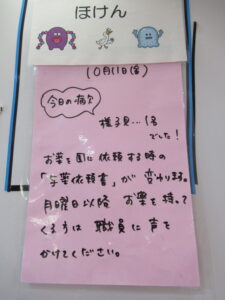 ほけん
10月11日(金)
今日の病欠
様子見…1名
でした!
お薬を園に依頼する時の
「与薬依頼書」が変わります。
月曜日以降 お薬を持って
くる方は 職員に声を
かけてください。